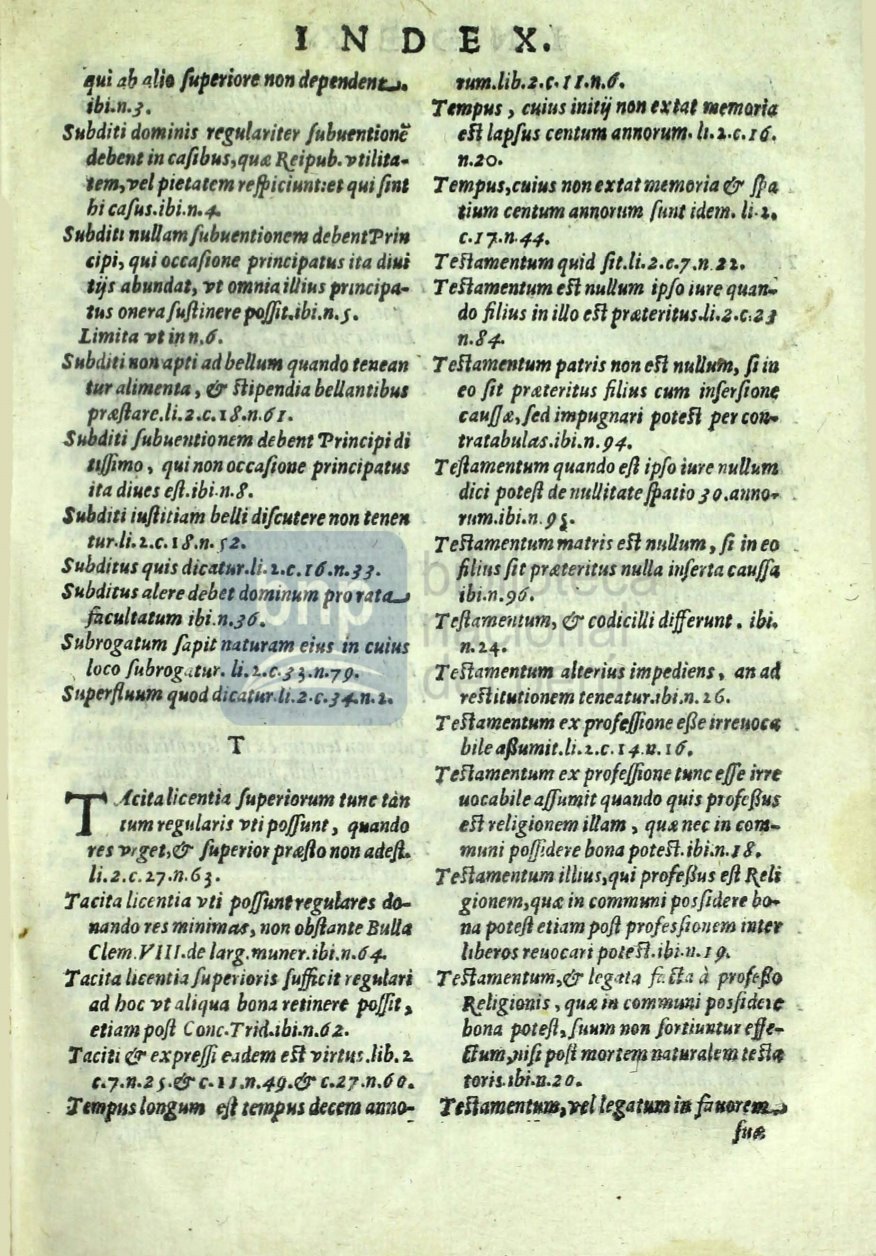 INDEX.
qui ab alio ſuperiore non dependent.
ibi.n.3.
Subditi dominis regulariter ſubuentionẽ
debent in caſibus, quæ Reipub. vtilita-
tem, vel pietatem reſpiciunt: et qui ſint
hi caſus.ibi.n.4.
Subditi nullam ſubuentionem debent Prin
cipi, qui occaſione principatus ita diui
tijs abundat, vt omnia illius principa-
tus onera ſuſtinere poſſit.ibi.n.5.
Limita vt in n.6.
Subditi non apti ad bellum quando tenean
tur alimenta, & ſtipendia bellantibus
præſtare.li.2.c.18.n.61.
Subditi ſubuentionem debent Principi di
tiſſimo, qui non occaſione principatus
ita diues eſt.ibi.n.8.
Subditi iuſtitiam belli diſcutere non tenen
tur.li.2.c.18.n.52.
Subditus quis dicatur.li.2.c.16.n.33.
Subditus alere debet dominum pro rata
facultatum ibi.n.36.
Subrogatum ſapit naturam eius in cuius
loco ſubrogatur. li.2.c.33.n.79.
Superfluum quod dicatur.li.2.c.34.n.2.
T
TAcita licentia ſuperiorum tunc tàn
tum regularis vti poſſunt, quando
res vrget, & ſuperior præſto non adeſt.
li.2.c.27.n.63.
Tacita licentia vti poſſunt regulares do-
nando res minimas, non obſtante Bulla
Clem.VIII.de larg.muner.ibi.n.64.
Tacita licentia ſuperioris ſufficit regulari
ad hoc vt aliqua bona retinere poſſit,
etiam poſt Conc.Trid.ibi.n.62.
Taciti & expreſſi eadem eſt virtus.lib.2
c.7.n.25.& c.11.n.49.& c.27.n.60.
Tempus longum eſt tempus decem anno-
rum.lib.2.c.11.n.6.
Tempus, cuius initij non extat memoria
eſt lapſus centum annorum. li.2.c.16.
n.20.
Tempus, cuius non extat memoria & ſpa
tium centum annorum ſunt idem. li.2.
c.17.n.44.
Teſtamentum quid ſit.li.2.c.7.n.22.
Teſtamentum eſt nullum ipſo iure quan-
do filius in illo eſt præteritus.li.2.c.23
n.84.
Teſtamentum patris non eſt nullum, ſi in
eo ſit præteritus filius cum inſerſione
cauſſæ, ſed impugnari poteſt per con-
tratabulas.ibi.n.94.
Teſtamentum quando eſt ipſo iure nullum
dici poteſt de nullitate ſpatio 30.anno-
rum.ibi.n.95.
Teſtamentum matris eſt nullum, ſi in eo
filius ſit præteritus nulla inſerta cauſſa
ibi.n.96.
Teſtamentum, & codicilli differunt. ibi.
n.24.
Teſtamentum alterius impediens, an ad
reſtitutionem teneatur.ibi.n.26.
Teſtamentum ex profeſſione eſſe irreuoca
bile aſſumit.li.2.c.14.n.16.
Teſtamentum ex profeſſione tunc eſſe irre
uocabile aſſumit quando quis profeſſus
eſt religionem illam, quæ nec in com-
muni poſſidere bona poteſt.ibi.n.18.
Teſtamentum illius, qui profeſſus eſt Reli
gionem, quæ in communi poſſidere bo-
na poteſt etiam poſt profeſſionem inter
liberos reuocari poteſt.ibi.n.19.
Teſtamentum, & legata facta à profeſſo
Religionis, quæ in communi poſſidere
bona poteſt, ſuum non ſortiuntur effe-
ctum, niſi poſt mortem naturalem teſta
toris.ibi.n.20.
Teſtamentum, vel legatum in fauorem
ſuæ